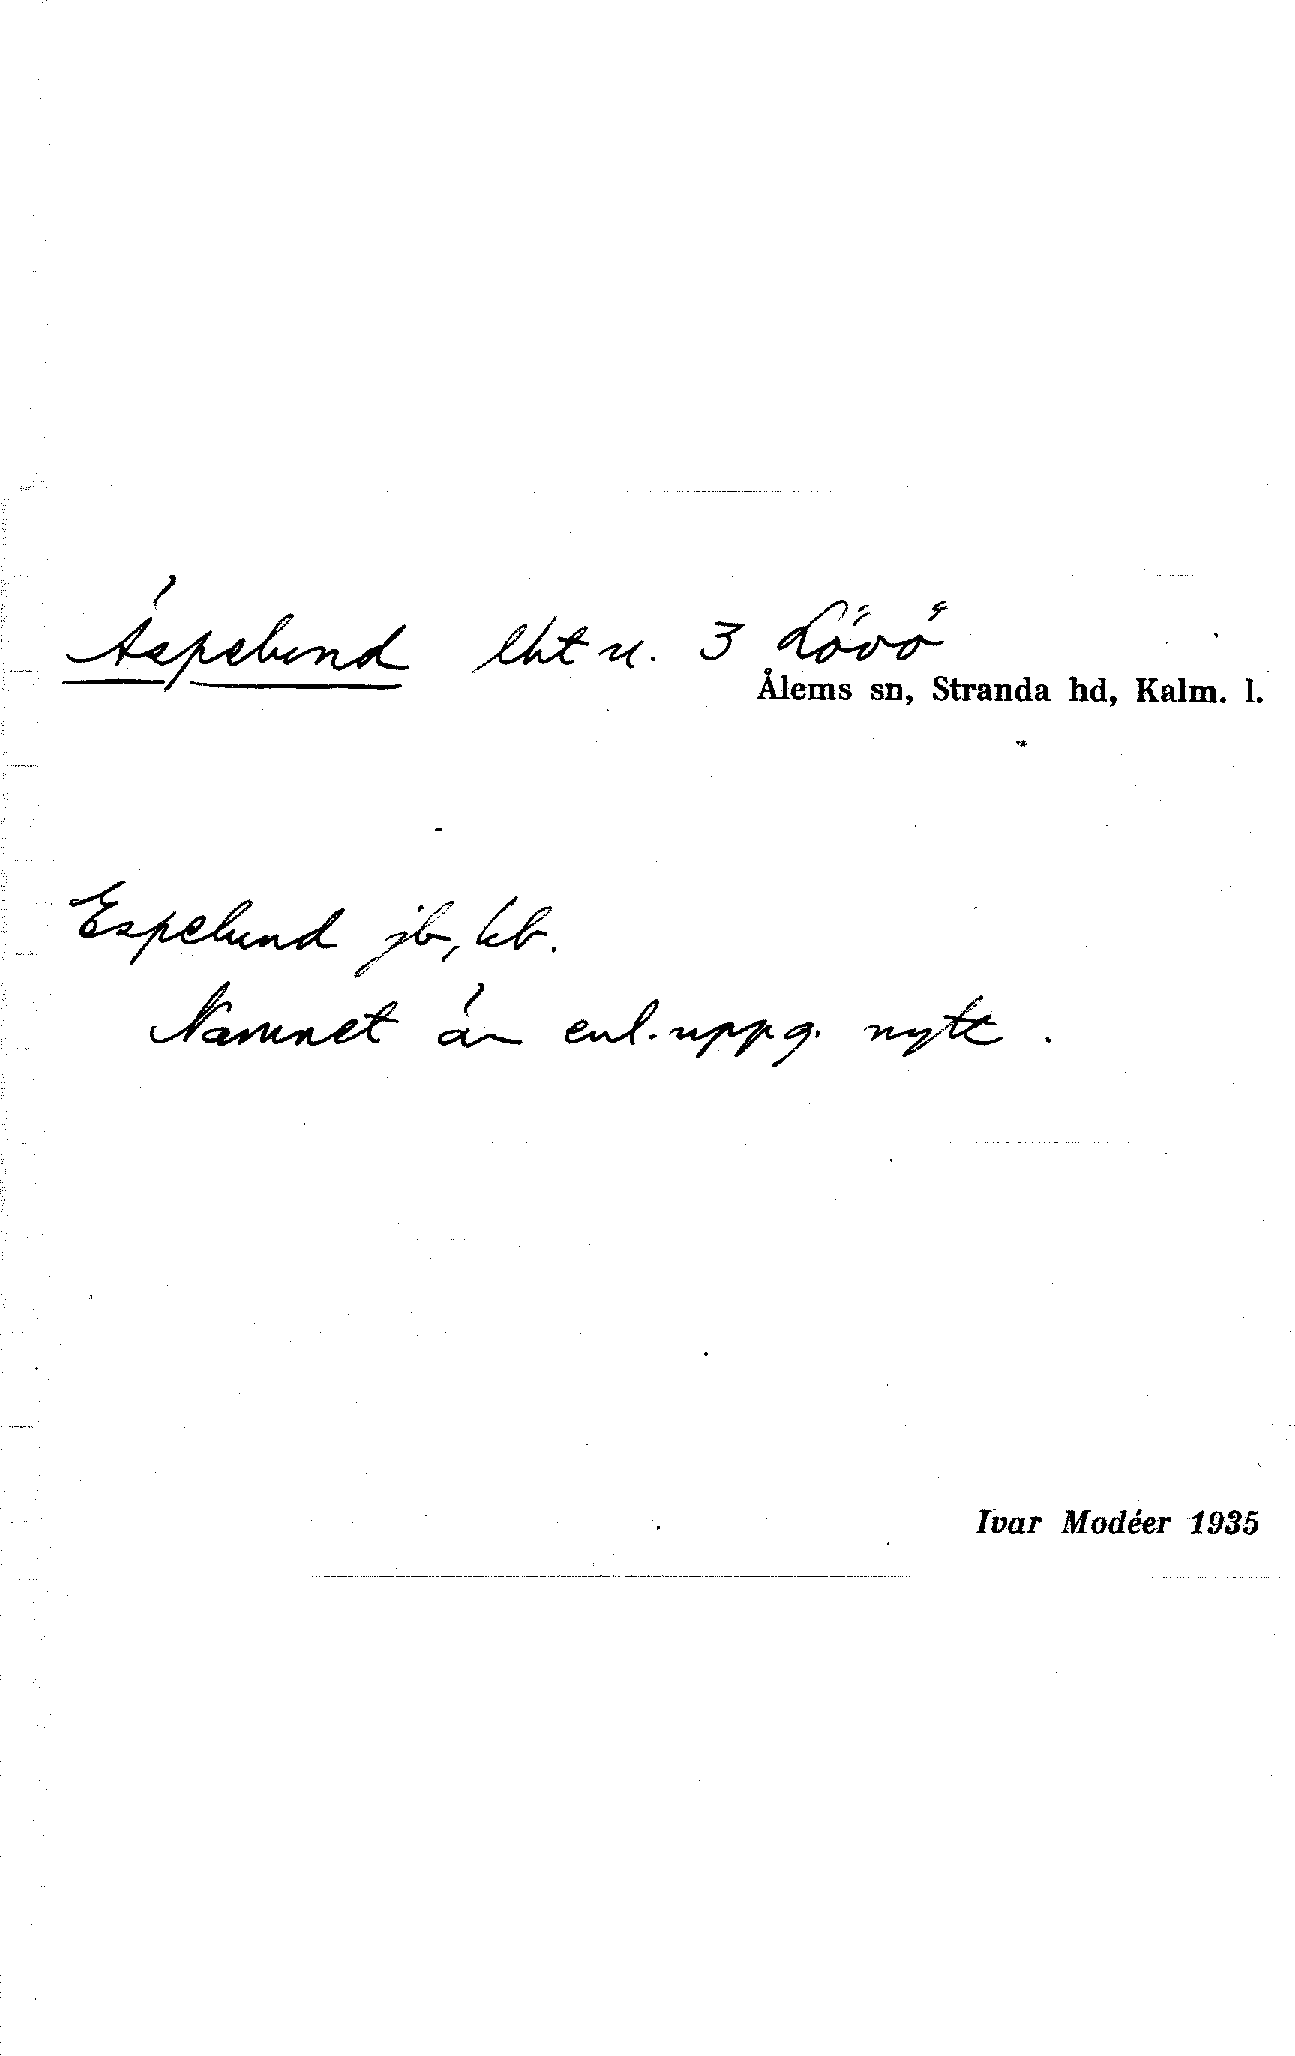 Äspelund lht u. 3 Lövö
Ålems sn, Stranda hd, Kalm. l.
Espelund jb, kb.
Namnet är enl. uppg. nytt.
Ivar Modéer 1935